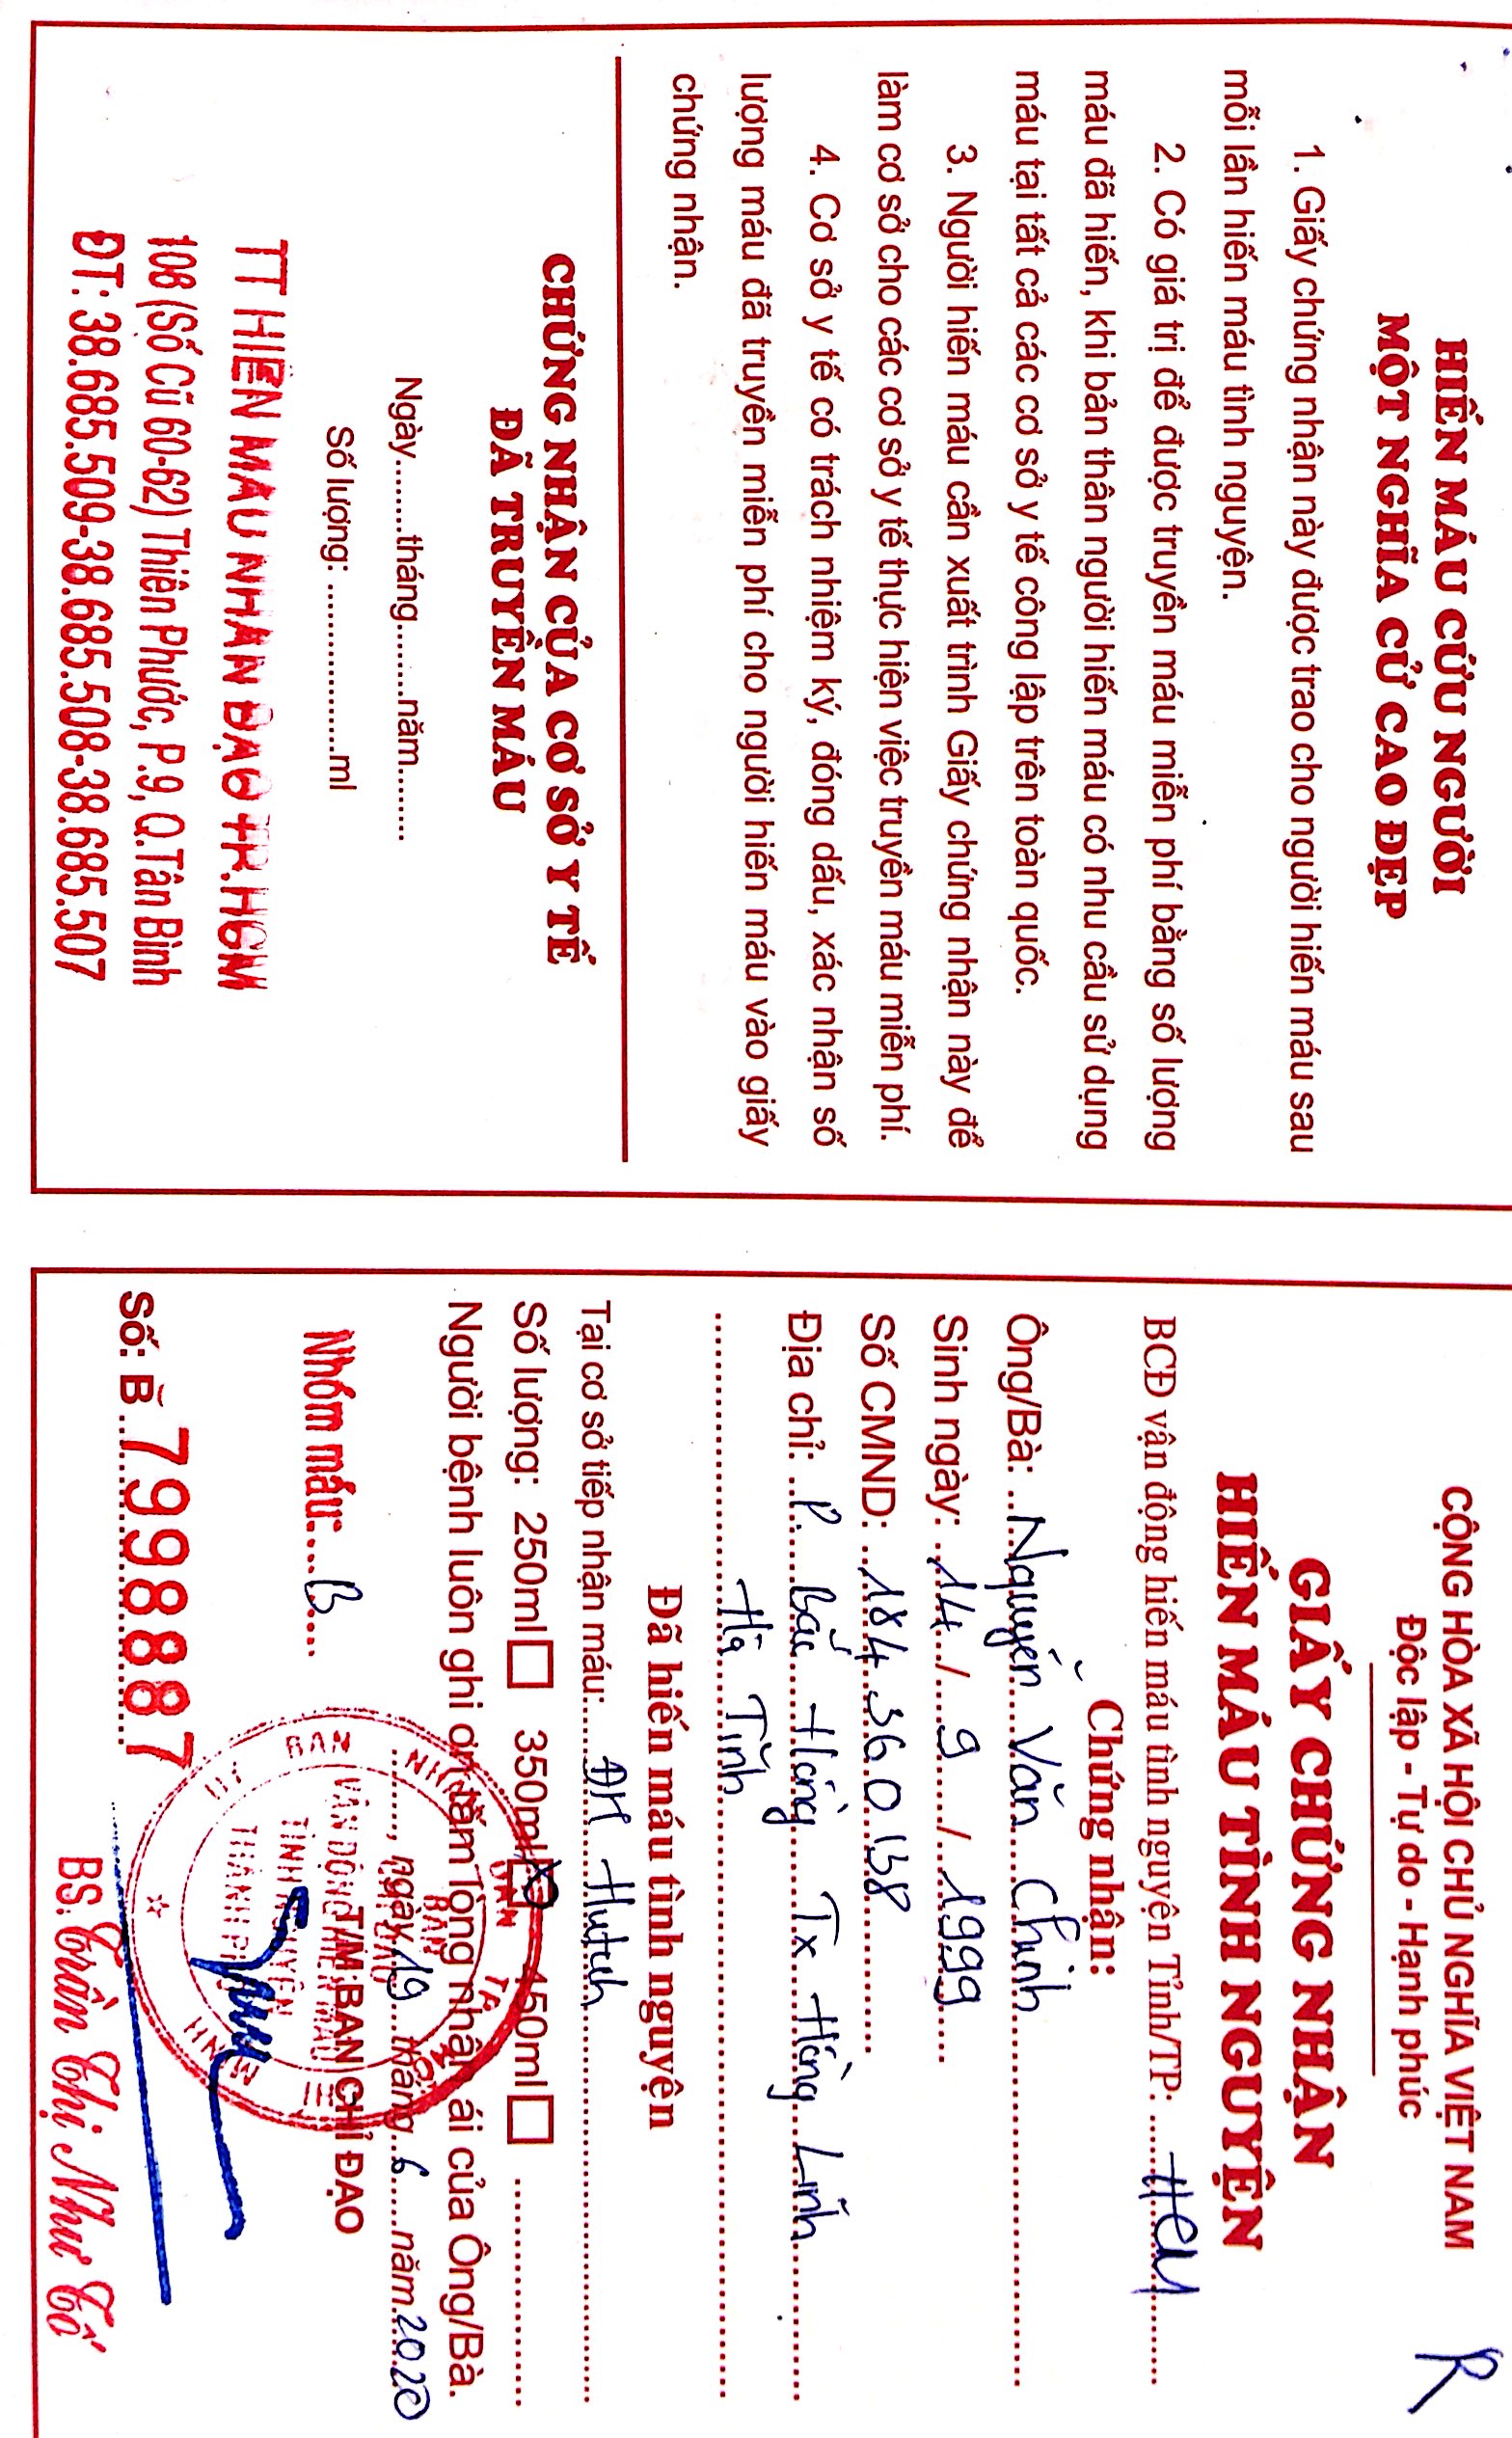 HIẾN MÁU CỨU NGƯỜI
MỘT NGHĨA CỬ CAO ĐẸP
1. Giấy chứng nhận này được trao cho người hiến máu sau
mỗi lần hiến máu tình nguyện.
2. Có giá trị để được truyền máu miễn phí bằng số lượng
máu đã hiến, khi bản thân người hiến máu có nhu cầu sử dụng
máu tại tất cả các cơ sở y tế công lập trên toàn quốc.
3. Người hiến máu cần xuất trình Giấy chứng nhận này để
làm cơ sở cho các cơ sở y tế thực hiện việc truyền máu miễn phí.
4. Cơ sở y tế có trách nhiệm ký, đóng dấu, xác nhận số
lượng máu đã truyền miễn phí cho người hiến máu vào giấy
chứng nhận.
CHỨNG NHẬN CỦA CƠ SỞ Y TẾ
ĐÃ TRUYỀN MÁU
Ngày........tháng........năm........
Số lượng: ..................ml
TT HIẾN MÁU NHÂN ĐẠO TP.HCM
106 (Số Cũ 60-62) Thiên Phước, P.9, Q.Tân Bình
ĐT: 38.685.509-38.685.508-38.685.507
R
CỘNG HÒA XÃ HỘI CHỦ NGHĨA VIỆT NAM
Độc lập - Tự do - Hạnh phúc
GIẤY CHỨNG NHẬN
HIẾN MÁU TÌNH NGUYỆN
BCĐ vận động hiến máu tình nguyện Tỉnh/TP: HCM
Chứng nhận:
Ông/Bà: Nguyễn Văn Chinh
Sinh ngày: 14 / 9 / 1999
Số CMND: 184 360 138
Địa chỉ: P. Bắc Hồng Tx Hồng Lĩnh
Hà Tĩnh
Đã hiến máu tình nguyện
Tại cơ sở tiếp nhận máu: ĐH Hutech
Số lượng: 250ml 350ml 450ml
Người bệnh luôn ghi ơn tấm lòng nhân ái của Ông/Bà.
, ngày 19 tháng 6 năm 2020
T/M BAN CHỈ ĐẠO
Nhóm máu: B
ỦY BAN NHÂN DÂN TP HỒ CHÍ MINH
BAN
CHỈ ĐẠO
VẬN ĐỘNG HIẾN MÁU
TÌNH NGUYỆN
THÀNH PHỐ
Số: B 7998887
BS. Trần Thị Như Tố